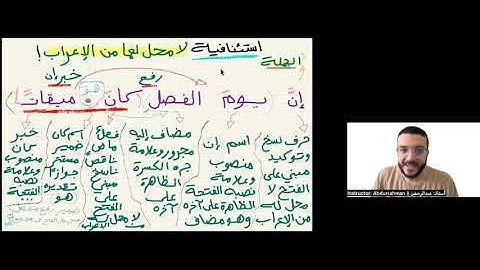 الجملة استئنافية لا محل لها من الإعراب !
رفع
خبر إن
هو
إنَّ يومَ الفصل كان ميقاتًا
حرف نسخ
وتوكيد
مبني على
الفتح لا
محل له
من الإعراب
اسم إن
منصوب
وعلامة
نصبه الفتحة
الظاهرة على آخره
وهو مضاف
مضاف إليه
مجرور وعلامة
جره الكسرة
الظاهرة
على
آخره
فعل
ماض
ناقص
ناسخ
مبني
على
الفتح
لا محل له
من الإعراب
اسم كان
ضمير
مستتر
جوازا
تقديره
هو
خبر
كان
منصوب
وعلامة
نصبه
الفتحة
Instructor: Abdurrahman || أستاذ: عبدالرحمن